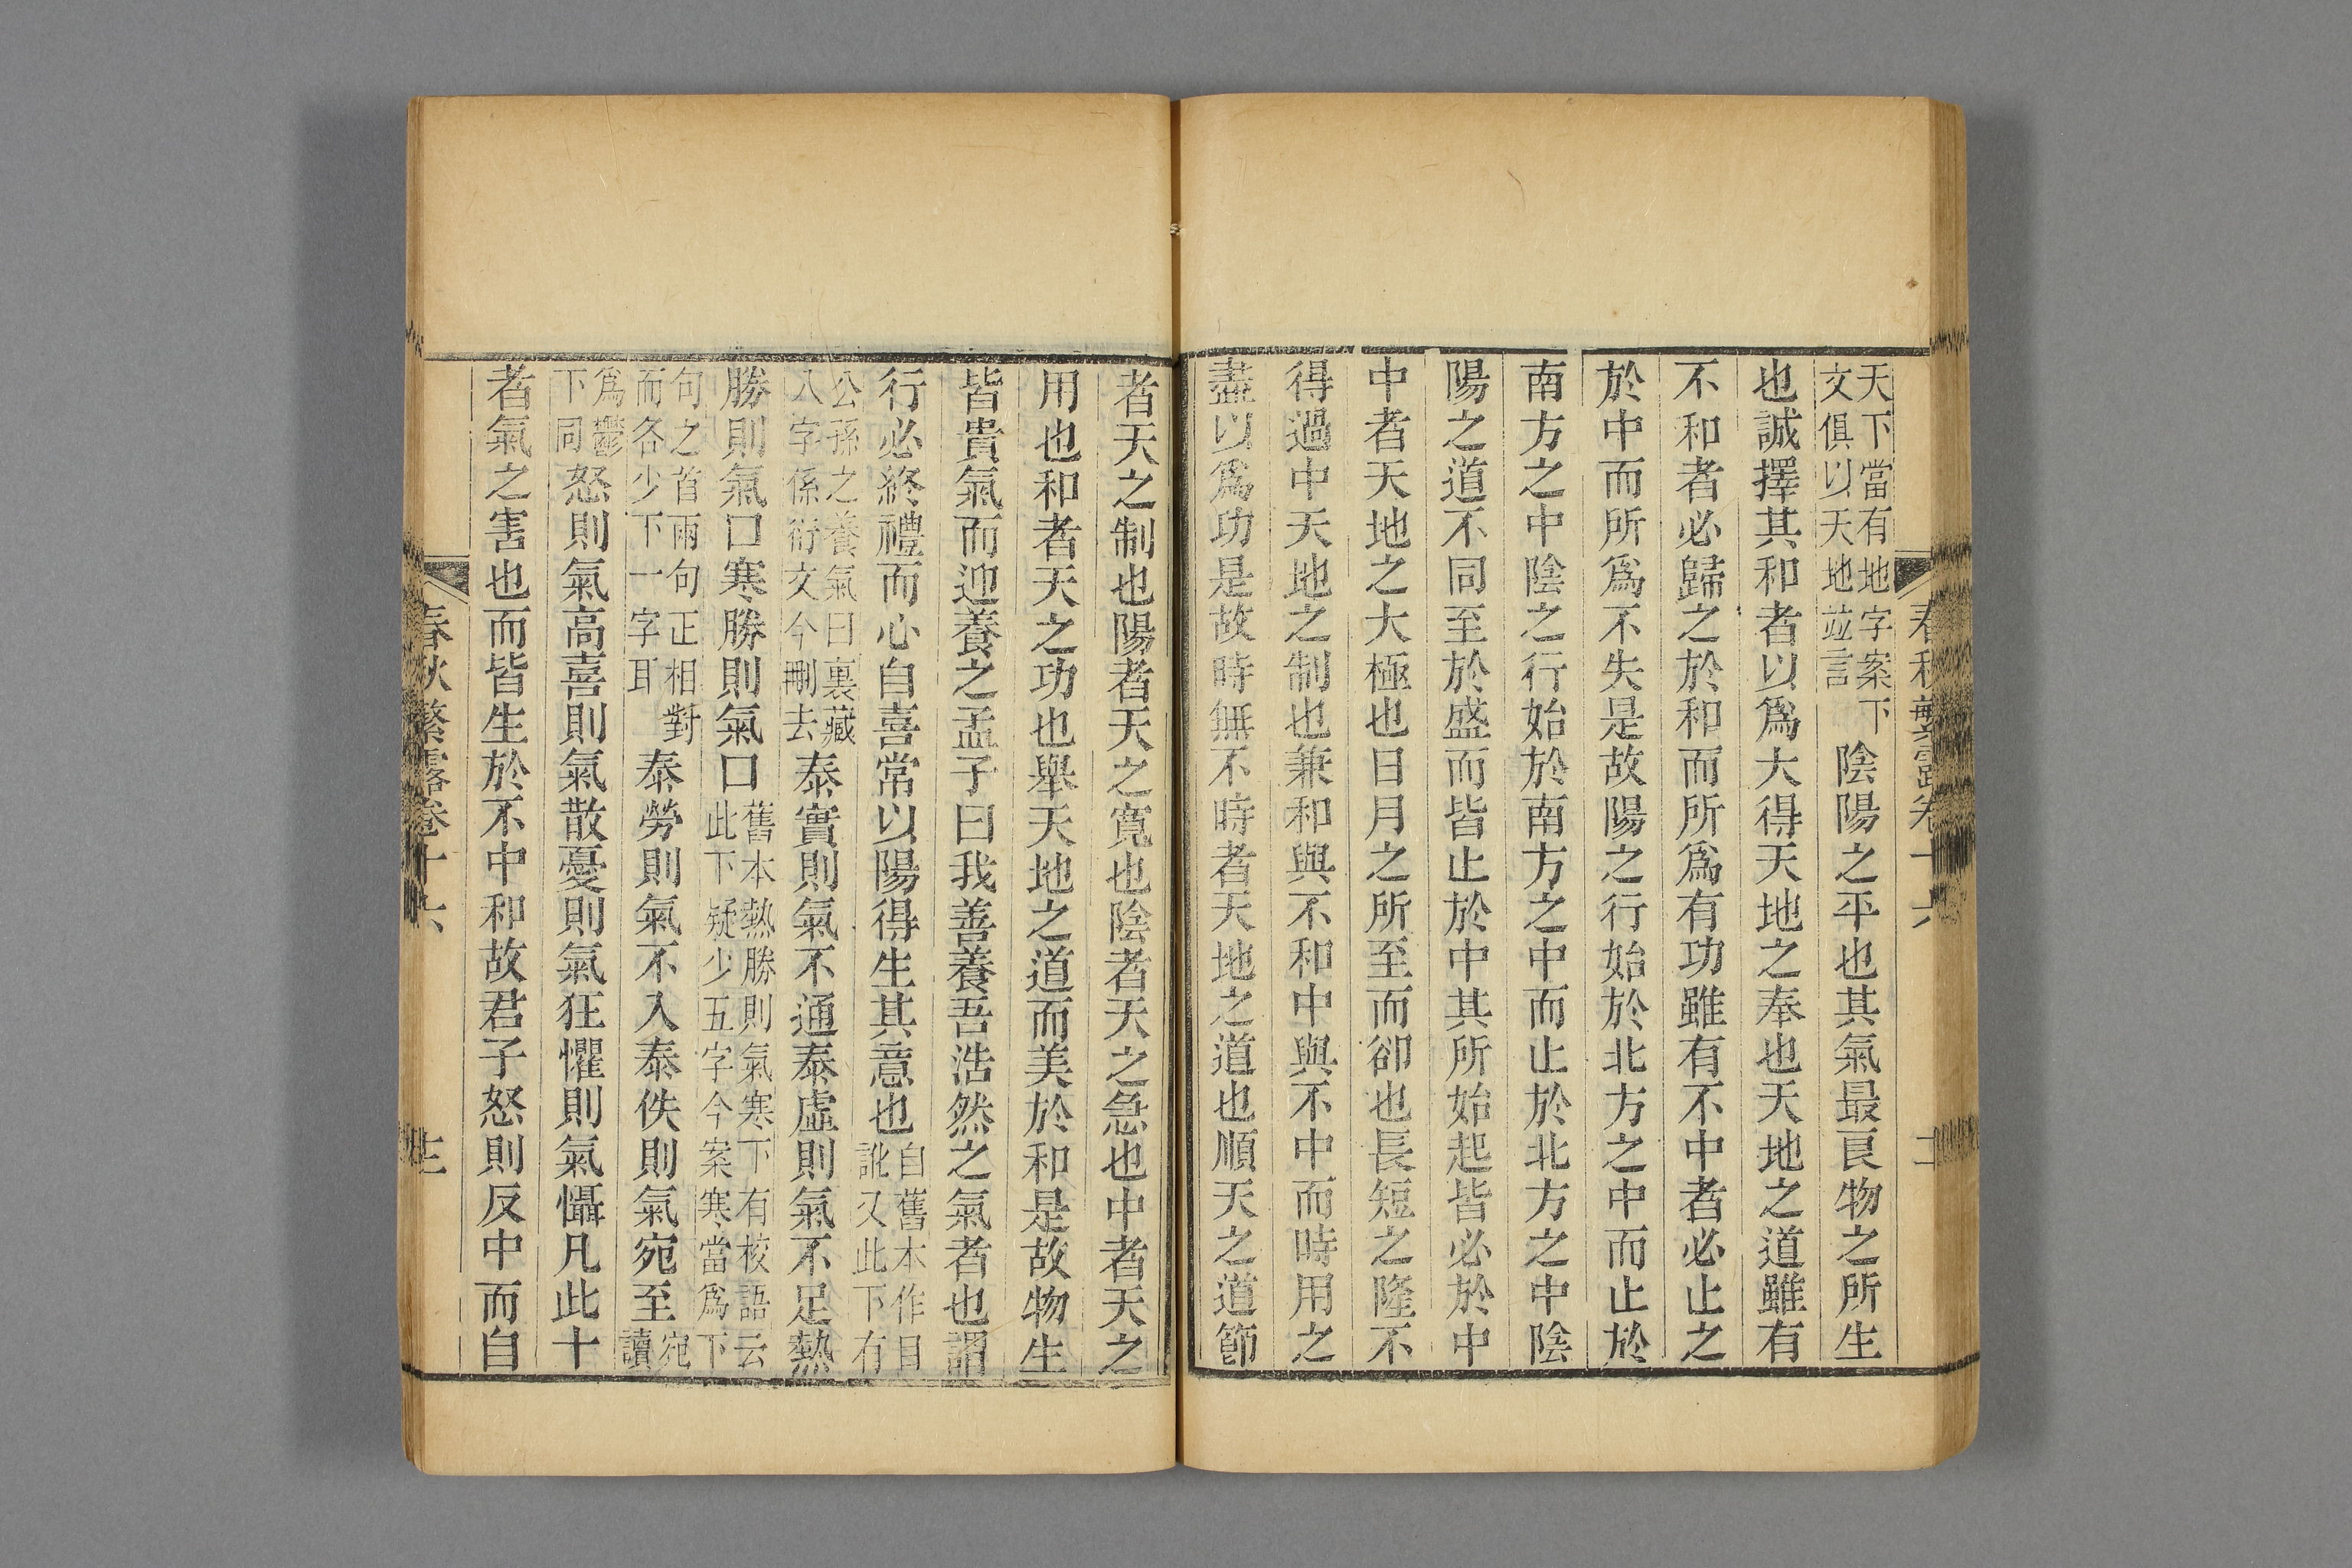 春秋繁露卷十六
天下當有地字案下
文俱以天地並言
陰陽之平也其氣最良物之所生
也誠擇其和者以爲大得天地之奉也天地之道雖有
不和者必歸之於和而所爲有功雖有不中者必止之
於中而所爲不失是故陽之行始於北方之中而止於
南方之中陰之行始於南方之中而止於北方之中陰
陽之道不同至於盛而皆止於中其所始起皆必於中
中者天地之大極也日月之所至而卻也長短之隆不
得過中天地之制也兼和與不和中與不中而時用之
盡以爲功是故時無不時者天地之道也順天之道節
者天之制也陽者天之寬也陰者天之急也中者天之
用也和者天之功也舉天地之道而美於和是故物生
皆貴氣而迎養之孟子曰我善養吾浩然之氣者也謂
行必終禮而心自喜常以陽得生其意也
自舊本作目
訛又此下有
公孫之養氣曰裏藏
八字係衍文今刪去
泰實則氣不通泰虛則氣不足熱
勝則氣口寒勝則氣口
舊本熱勝則氣寒下有校語云
此下疑少五字今案寒當爲下
句之首兩句正相對
而各少下一字耳
泰勞則氣不入泰佚則氣宛至
宛
讀
爲鬱
下同
怒則氣高喜則氣散憂則氣狂懼則氣懾凡此十
者氣之害也而皆生於不中和故君子怒則反中而自
春秋繁露卷十六